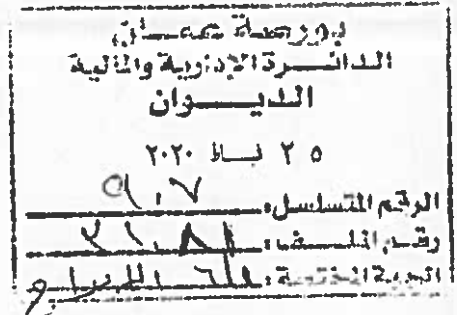 بورصة عمان
الدائرة الإدارية والمالية
الديوان
٢٥ شباط ٢٠٢٠
الرقم المتسلسل: ٩٠٧
رقم الملف:
الجهة المختصة: